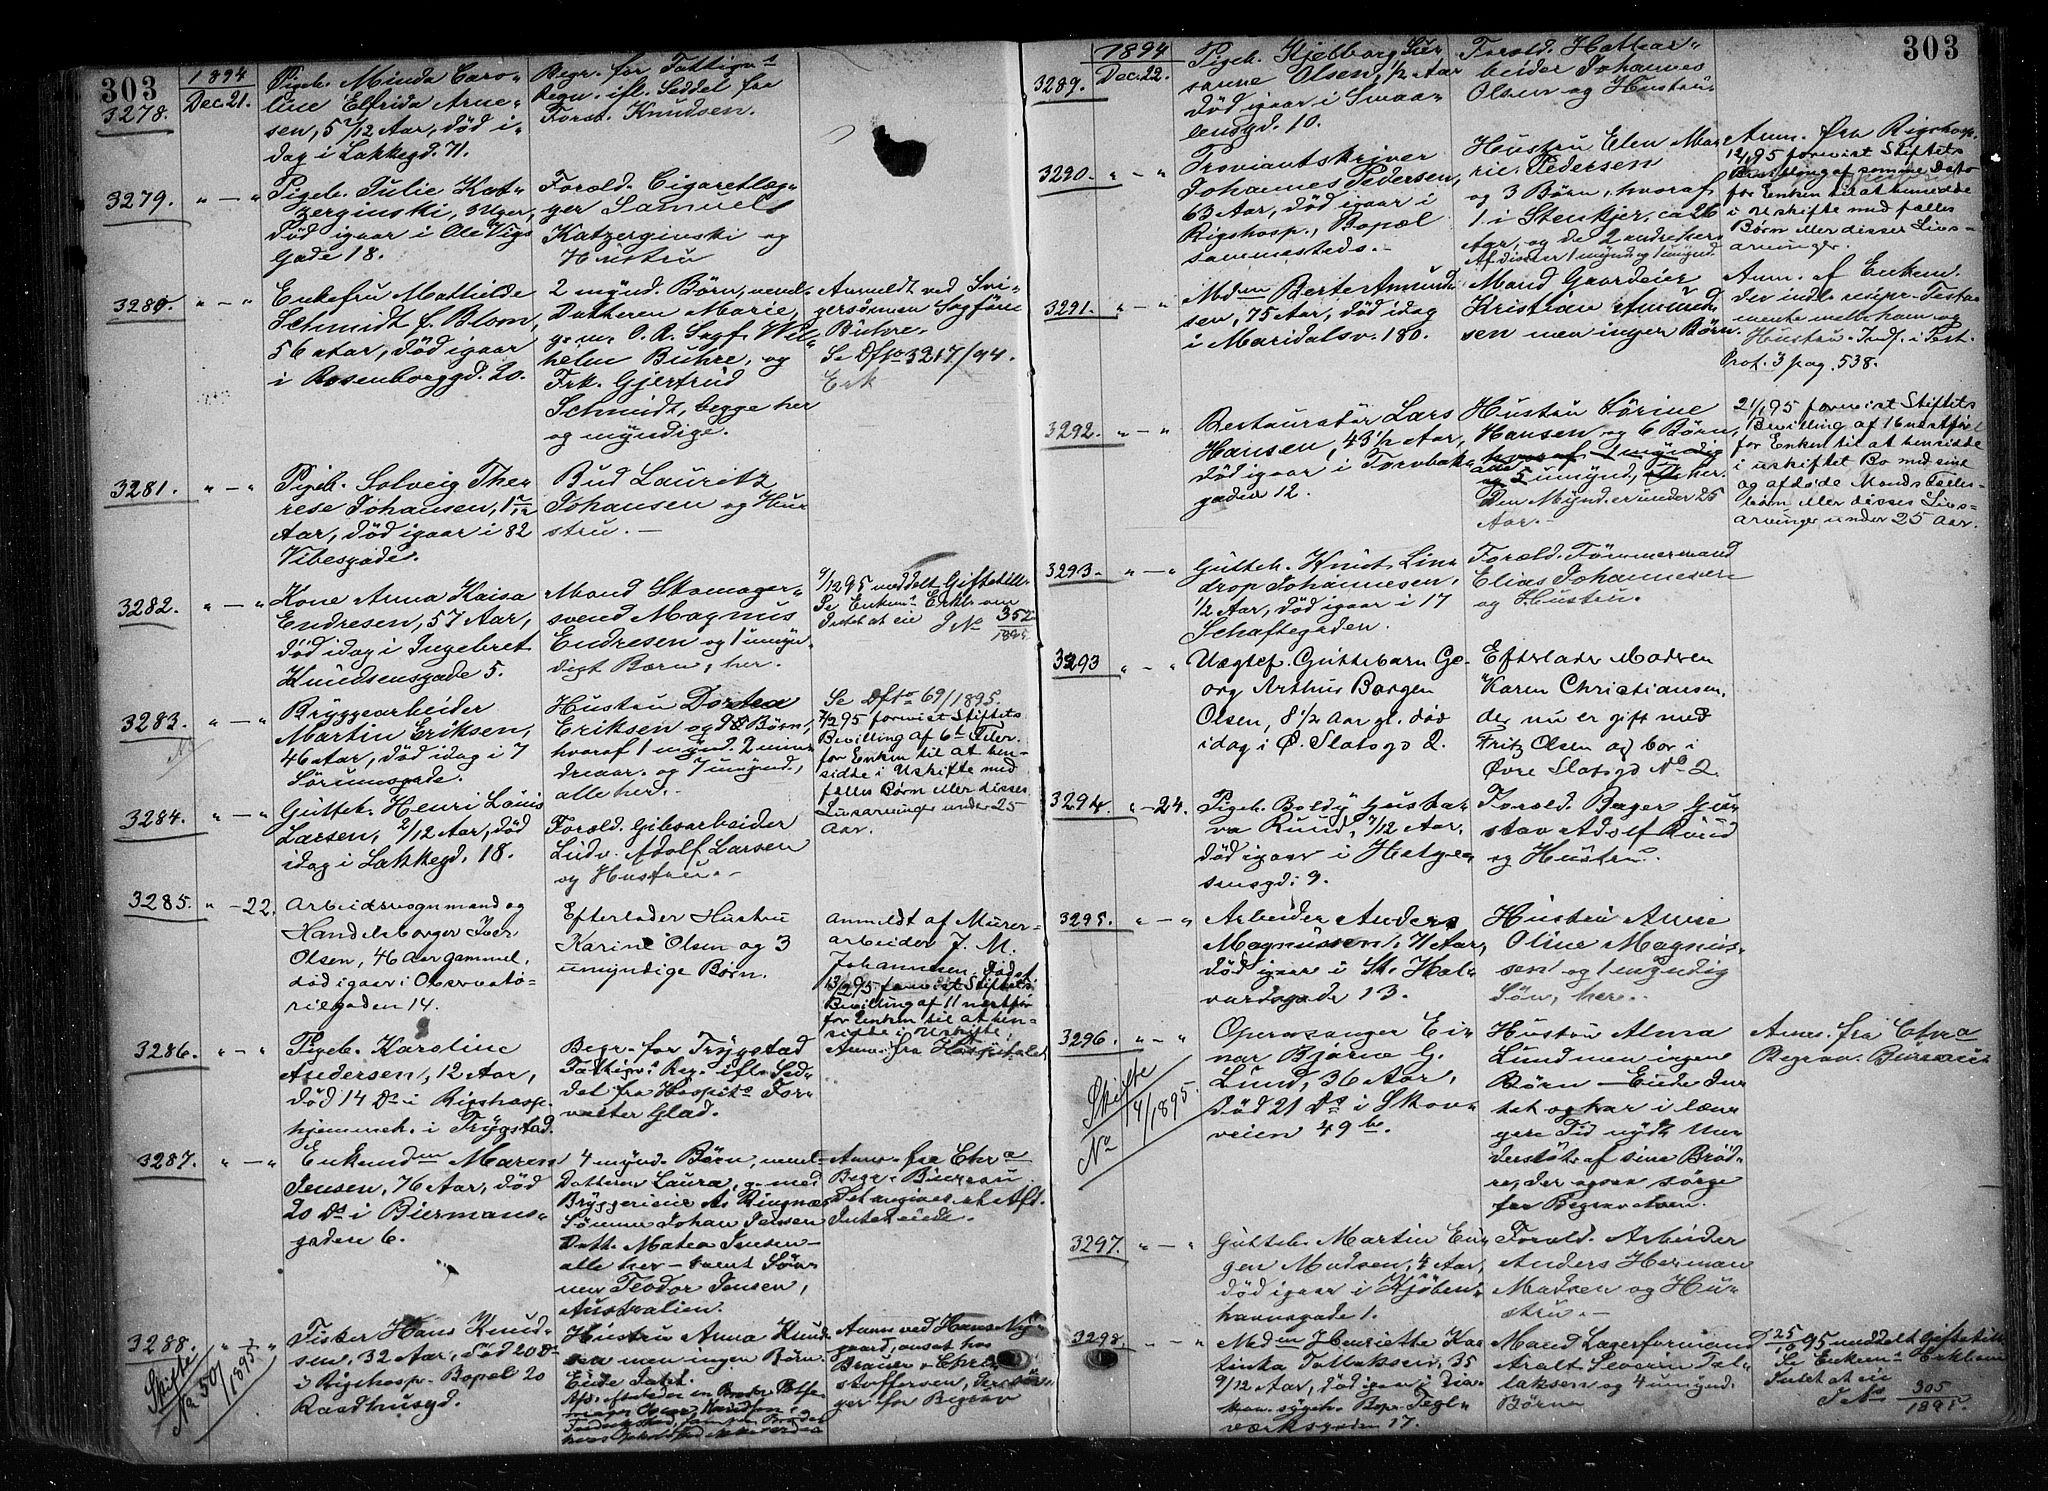 303
1894
3278.
Dec. 21.
Pigeb. Minda Caro-
line Elfrida Arne-
sen, 5 7/12 Aar, død i-
dag i Lakkegd. 71.
Begr. for Fattigv.s
Regn. ifl. Seddel fra
Forst. Knudsen.
3279. " - "
Pigeb. Julie Kat-
zerginski, 3 Uger,
død igaar i Ole Vigs
Gade 18.
Foræld. Cigaretlæg-
ger Samuel
Katzerginski og
Hustru
3280. " - "
Enkefru Mathilde
Schmidt f. Blom,
56 Aar, død igaar
i Rosenborggd. 20.
2 mynd. Børn, neml.
Datteren Marie,
g. m. O. R. Sagf. Wil-
helm Buhre, og
Frk. Gjertrud
Schmidt, begge her
og myndige.
Anmeldt ved Svi-
gersønnen Sagfører
Buhre.
Se Dfto 3217/94.
3281. " - "
Pigeb. Solveig The-
rese Johansen, 1
Aar, død igaar i 82
Vibesgade.
Bud Lauritz
Johansen og Hu-
stru. -
3282. " - "
Kone Anna Kaisa
Endresen, 57 Aar,
død idag i Ingebret
Knudsensgade 5.
Mand Skomager-
svend Magnus
Endresen og 1 umyn-
digt Barn, her.
9/12 95 meddelt Giftetill.
Se Enkem.s Erkl. om
Intet at eie J No 352
1895
3283. " - "
Bryggearbeider
Martin Eriksen,
46 Aar, død idag i 7
Sørumsgade.
Hustru Dorthea
Eriksen og 8 Børn,
hvoraf 1 mynd. 2 min-
dreaar. og 7 umynd.,
alle her.
Se Dfto 69/1895.
7/2 95 forevist Stiftets
Bevilling af 6te Febr.
for Enken til at hen-
sidde i Uskifte med
fælles Børn eller disses
Livsarvinger under 25
Aar.
3284. " - "
Gutteb. Henri Louis
Larsen, 2/12 Aar, død
idag i Lakkegd. 18.
Foræld. Gibsarbeider
Ludv. Adolf Larsen
og Hustru. -
3285. " - 22.
Arbeidsvognmand og
Handelsborger Iver
Olsen, 46 Aar gammel,
død igaar i Observato-
riegaden 14.
Efterlader Hustru
Karine Olsen og 3
umyndige Børn.
Anmeldt af Murer-
arbeider J. M.
Johannesen.
13/2 95 forevist Stiftets
Bevilling af 11 næstfør
for Enken til at hen-
sidde i Uskifte.
3286. " - "
Pigeb. Karoline
Andersen, 12 Aar,
død 14 Ds i Rigshosp.
hjemmeh. i Trygstad.
Begr. for Trygstad
Fattigv.s Reg. ifl. Sed-
del fra Hospits For-
valter Glad.
Anm. fra Hospitalet
3287. " - "
Enkemdm Maren
Jensen, 76 Aar, død
20 Ds i Biermans-
gaden 6.
4 mynd. Børn, neml.
Datteren Laura, g. med
Bryggerieier As Ringnæs
Sønnen Johan Jensen
Datt. Matea Jensen -
alle her - samt Søn-
nen Teodor Jensen,
Australien.
Anm. fra Chr.a
Begr. Bureau
Det angives at Afd.
Intet eiede.
3288. " - "
Skifte
No 50/1895
Fisker Hans Knud-
sen, 32 Aar, død 20 Ds
i Rigshosp. Bopæl 20
Raadhusgd.
Hustru Anna Knud-
sen men ingen Børn.
Eiede Intet.
Anm. ved Hans Ny-
gaard, ansat hos
Brauer Chri-
stoffersen,
ger for Begrav
303
1894
3289.
Dec. 22.
Pigeb. Hjelborg Su-
sanne Olsen, 1/2 Aar
død igaar i Smaa-
lensgd. 10.
Foræld. Hattear-
beider Johannes
Olsen og Hustru.
3290. " - "
Proviantskriver
Johannes Pedersen,
63 Aar, død igaar i
Rigshosp., Bopæl
sammesteds. -
Hustru Elen Ma-
rie Pedersen
og 3 Børn, hvoraf
1 i Stenkjer, ca 26
Aar, og de 2 andre her
Af disse er 1 mynd og 1 umynd.
Anm. fra Rigshosp.
12/1 95 forevist Stiftets
Bevilling af samme Dato
for Enken til at hensidde
i Uskifte med fælles
Børn eller disses Livs-
arvinger.
3291. " - "
Mdm Berte Amund-
sen, 75 Aar, død idag
i Maridalsv. 180.
Mand Gaardeier
Kristian Amund-
sen men ingen Børn.
Anm. af Enkem.
der indl. recipr. Testa-
mente mellem ham og
Hustru. Indf. i Test.
Prot. 3 pag. 538.
3292. " - "
Restauratør Lars
Hansen, 43 1/2 Aar,
død igaar i Torvbak-
gaden 12.
Hustru Sørine
Hansen og 6 Børn,
hvoraf 1 myndig
og 5 umynd., alle her.
Den Mynd. er under 25
Aar. -
21/1 95 forevist Stiftets
Bevilling af 16 næstfør
for Enken til at hensidde
i uskiftet Bo med sine
og afdøde Mands fælles-
børn eller disses Livs-
arvinger under 25 Aar.
3293. " - "
Gutteb. Knut Lin-
drop Johannesen,
1/2 Aar, død igaar i 17
Schaftegaden.
Foræld. Tømmermand
Elias Johannesen
og Hustru.
3293 " - "
Uægtef. Guttebarn Ge-
org Arthur Borgen
Olsen, 8 1/2 Aar gl. død
idag i Ø. Slotsgd 2.
Efterlader Moderen
Karen Christiansen,
der nu er gift med
Fritz Olsen og bor i
Øvre Slotsgd No 2.
3294. " - 24.
Pigeb. Boldy Gusta-
va Ruud, 7/12 Aar,
død igaar i Helge-
sensgd. 9.
Foræld. Bager Gu-
stav Adolf Ruud
og Hustru.
3295. " - "
Arbeider Anders
Magnussen, 71 Aar,
død igaar i St. Hal-
vardsgade 13.
Hustru Anne
Oline Magnus-
sen og 1 myndig
Søn, her.
3296. " - "
Skifte
No 4/1895.
Operasanger Ei-
nar Bjørn G.
Lund, 36 Aar,
død 21 Ds i Skov-
veien 49 b.
Hustru Alma
Lund men ingen
Børn - Eiede In-
tet og har i læn-
gere Tid nydt Un-
derstøt. af sine Brød-
re, der ogsaa sørge
for Begravelsen.
Anm. fra Chr.a
Begrav. Bureau
3297. " - "
Gutteb. Martin Eu-
gen Madsen, 4 Aar,
død igaar i Kjøben-
havnsgade 1.
Foræld. Arbeider
Anders Herman
Madsen og Hu-
stru. -
3298. " - "
Mdm Henriette Ka-
tinka Tollaksen, 35
9/12 Aar, død igaar i Dia-
kon. sygeh. Bop. Tegl-
værksgaden 17.
Mand Lagerformand
Aralt Severin Tol-
laksen og 4 umynd.
Børn
D 25/10 95 meddelt Giftetill
Se Enkem.s Erkl. om
Intet at eie
J No 305
1895.